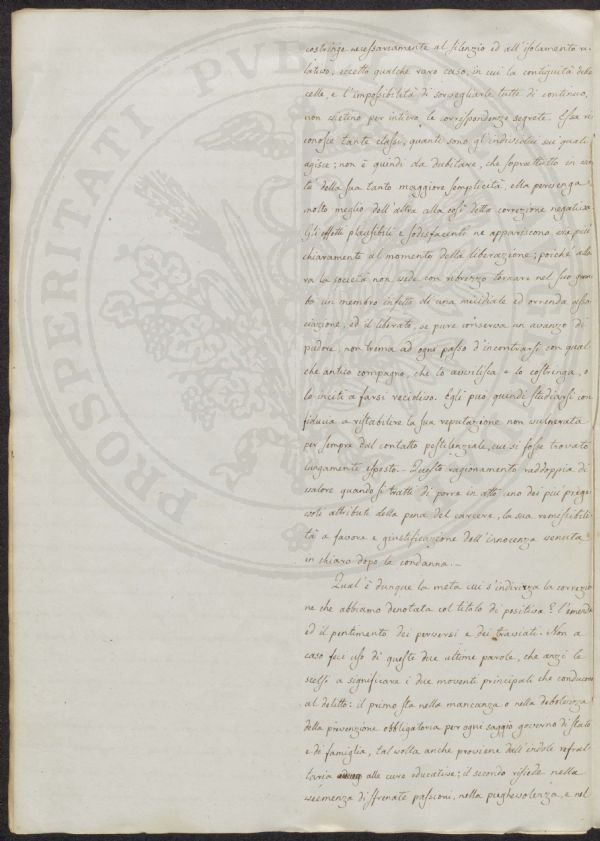 PROSPERITATI PVB
costringe necessariamente al silenzio ed all'isolamento re
lativo, eccetto qualche raro caso, in cui la contiguità delle
celle, e l'impossibilità di sorvegliarle tutte di continuo,
non vietino per intiero le corrispondenze segrete. Essa ri
conosce tante classi, quanti sono gl'individui sui quali
agisce; non è quindi da dubitare, che soprattutto in
tù della sua tanto maggiore semplicità, ella pervenga
molto meglio dell'altre alla così detta correzione negativa
Gli effetti plausibili e sodisfacenti ne appariscono, via più
chiaramente al momento della liberazione; porchè allo
ra la società non vede con ribrezzo tornare nel suo grem
bo un membro infetto di una micidiale ed orrenda asso
ciazione, ed il liberato, se pure conserva un avanzo di
pudore, non trema ad ogni passo d'incontrarsi con qual
che antico compagno, che lo avvilisca o lo costringa, o
lo inciti a farsi recidivo. Egli può quindi studiarsi con
fiducia a ristabilire la sua reputazione non vulnerata
per sempre dal contatto pestilenziale, cui si fosse trovato
lungamente esposto. – Questo ragionamento raddoppia di
valore quando si tratti di porre in atto uno dei più prege
voli attributi della pena del carcere, la sua remissibili
tà a favore e giustificazione dell'innocenza venuta
in chiaro dopo la condanna. –
Qual'è dunque la meta cui s'indirizza la correzio
ne che abbiamo denotata col titolo di positiva? l'emenda
ed il pentimento dei perversi e dei traviati. Non a
caso feci uso di queste due ultime parole, che anzi le
scelsi a significare i due moventi principali che conducono
al delitto: il primo sta nella mancanza o nella debolezza
della prevenzione obbligatoria per ogni saggio governo di Stato
e di famiglia, tal volta anche proviene dall'indole refrat
taria alle cure educative; il secondo risiede nella
veemenza di sfrenate passioni, nella pieghevolenza, e nel